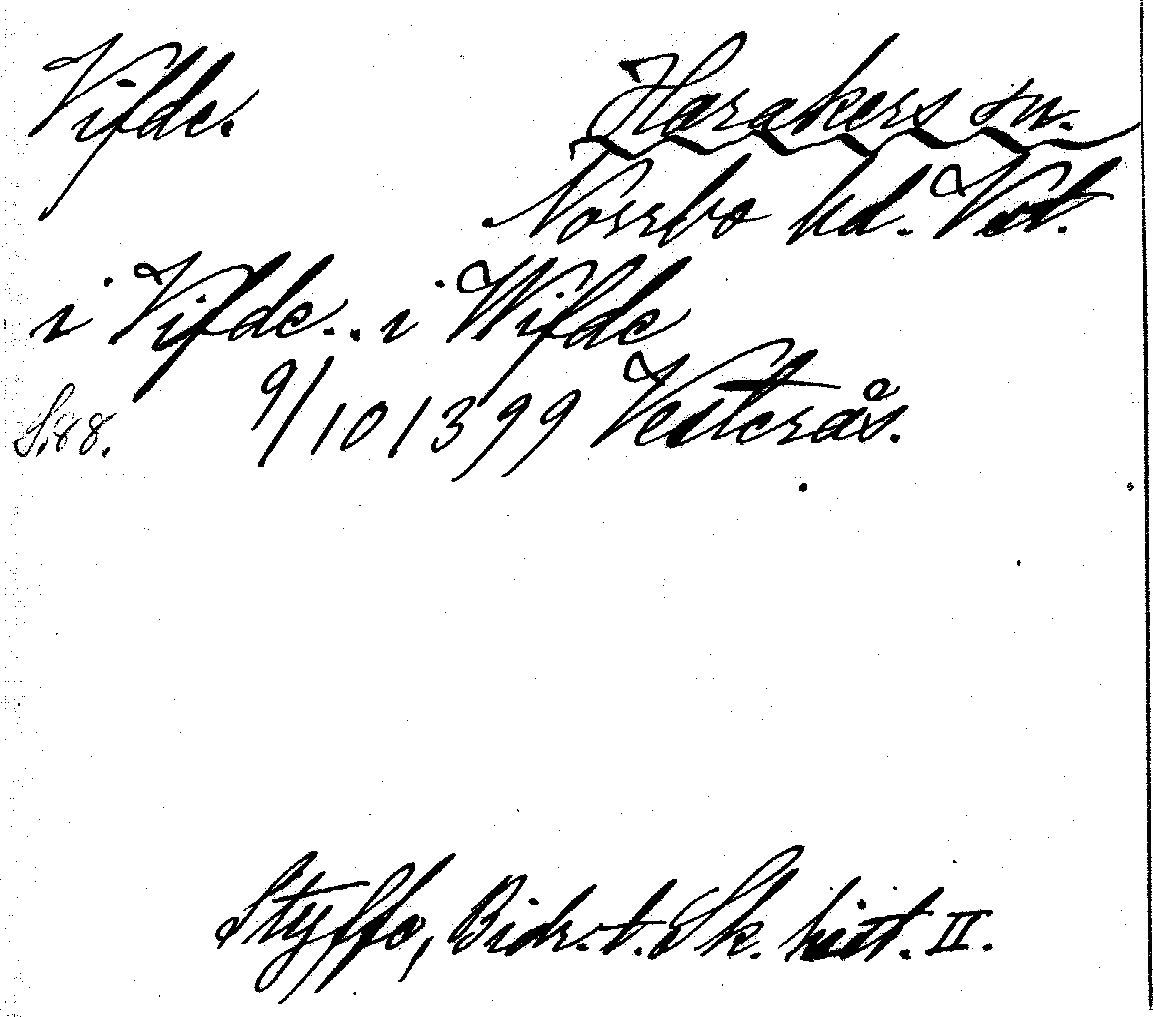 Vifde. Harakers sn.
Norrbo hd. Vstl.
i Vifde.. i Wifde
S. 88. 9/10 1399 Vesterås.
Styffe, Bidr. t. Sk. hist. II.